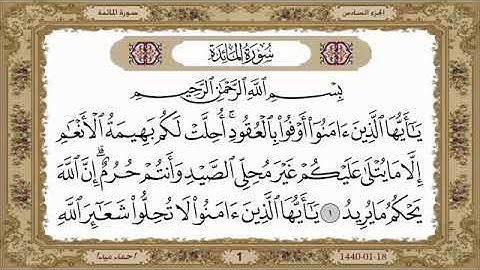 الجزء السادس
سورة المائدة
سُورَةُ المَائِدَة
بِسْمِ اللَّهِ الرَّحْمَٰنِ الرَّحِيمِ
يَٰٓأَيُّهَا الَّذِينَ ءَامَنُوٓا۟ أَوْفُوا۟ بِالْعُقُودِ ۚ أُحِلَّتْ لَكُم بَهِيمَةُ الْأَنْعَٰمِ
إِلَّا مَا يُتْلَىٰ عَلَيْكُمْ غَيْرَ مُحِلِّى الصَّيْدِ وَأَنتُمْ حُرُمٌ ۗ إِنَّ اللَّهَ
يَحْكُمُ مَا يُرِيدُ ١ يَٰٓأَيُّهَا الَّذِينَ ءَامَنُوا۟ لَا تُحِلُّوا۟ شَعَٰٓئِرَ اللَّهِ
1440-01-18
1